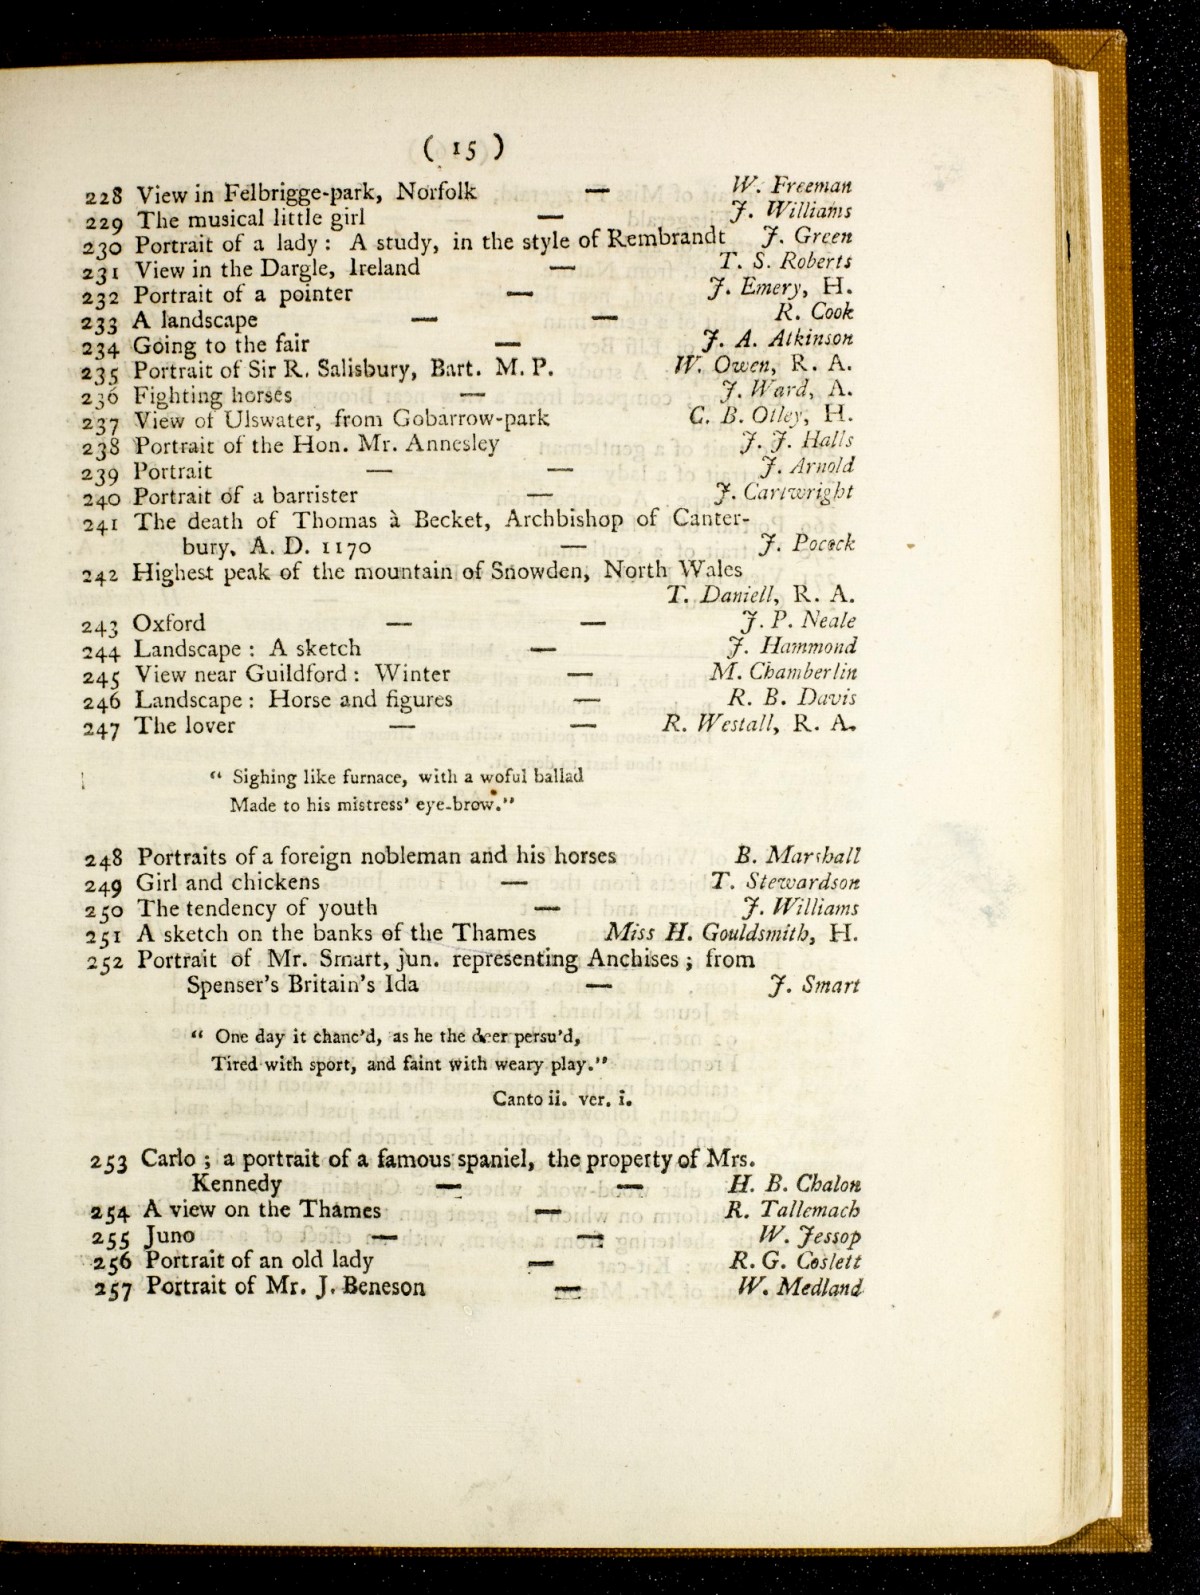 ( 15 )
228 View in Felbrigge-park, Norfolk — W. Freeman
229 The musical little girl — J. Williams
230 Portrait of a lady : A study, in the style of Rembrandt J. Green
231 View in the Dargle, Ireland — T. S. Roberts
232 Portrait of a pointer — J. Emery, H.
233 A landscape — — R. Cook
234 Going to the fair — J. A. Atkinson
235 Portrait of Sir R. Salisbury, Bart. M. P. W. Owen, R. A.
236 Fighting horses — J. Ward, A.
237 View of Ulswater, from Gobarrow-park C. B. Otley, H.
238 Portrait of the Hon. Mr. Annesley J. J. Halls
239 Portrait — — J. Arnold
240 Portrait of a barrister — J. Cartwright
241 The death of Thomas à Becket, Archbishop of Canter-
bury, A. D. 1170 — J. Pocock
242 Highest peak of the mountain of Snowden, North Wales
T. Daniell, R. A.
243 Oxford — — J. P. Neale
244 Landscape : A sketch — J. Hammond
245 View near Guildford : Winter — M. Chamberlin
246 Landscape : Horse and figures — R. B. Davis
247 The lover — — R. Westall, R. A.
“ Sighing like furnace, with a woful ballad
Made to his mistress’ eye-brow.”
248 Portraits of a foreign nobleman and his horses B. Marshall
249 Girl and chickens — T. Stewardson
250 The tendency of youth — J. Williams
251 A sketch on the banks of the Thames Miss H. Gouldsmith, H.
252 Portrait of Mr. Smart, jun. representing Anchises ; from
Spenser’s Britain’s Ida — J. Smart
“ One day it chanc’d, as he the deer persu’d,
Tired with sport, and faint with weary play.”
Canto ii. ver. i.
253 Carlo ; a portrait of a famous spaniel, the property of Mrs.
Kennedy — — H. B. Chalon
254 A view on the Thames — R. Tallemach
255 Juno — — W. Jessop
256 Portrait of an old lady — R. G. Coslett
257 Portrait of Mr. J. Beneson — W. Medland